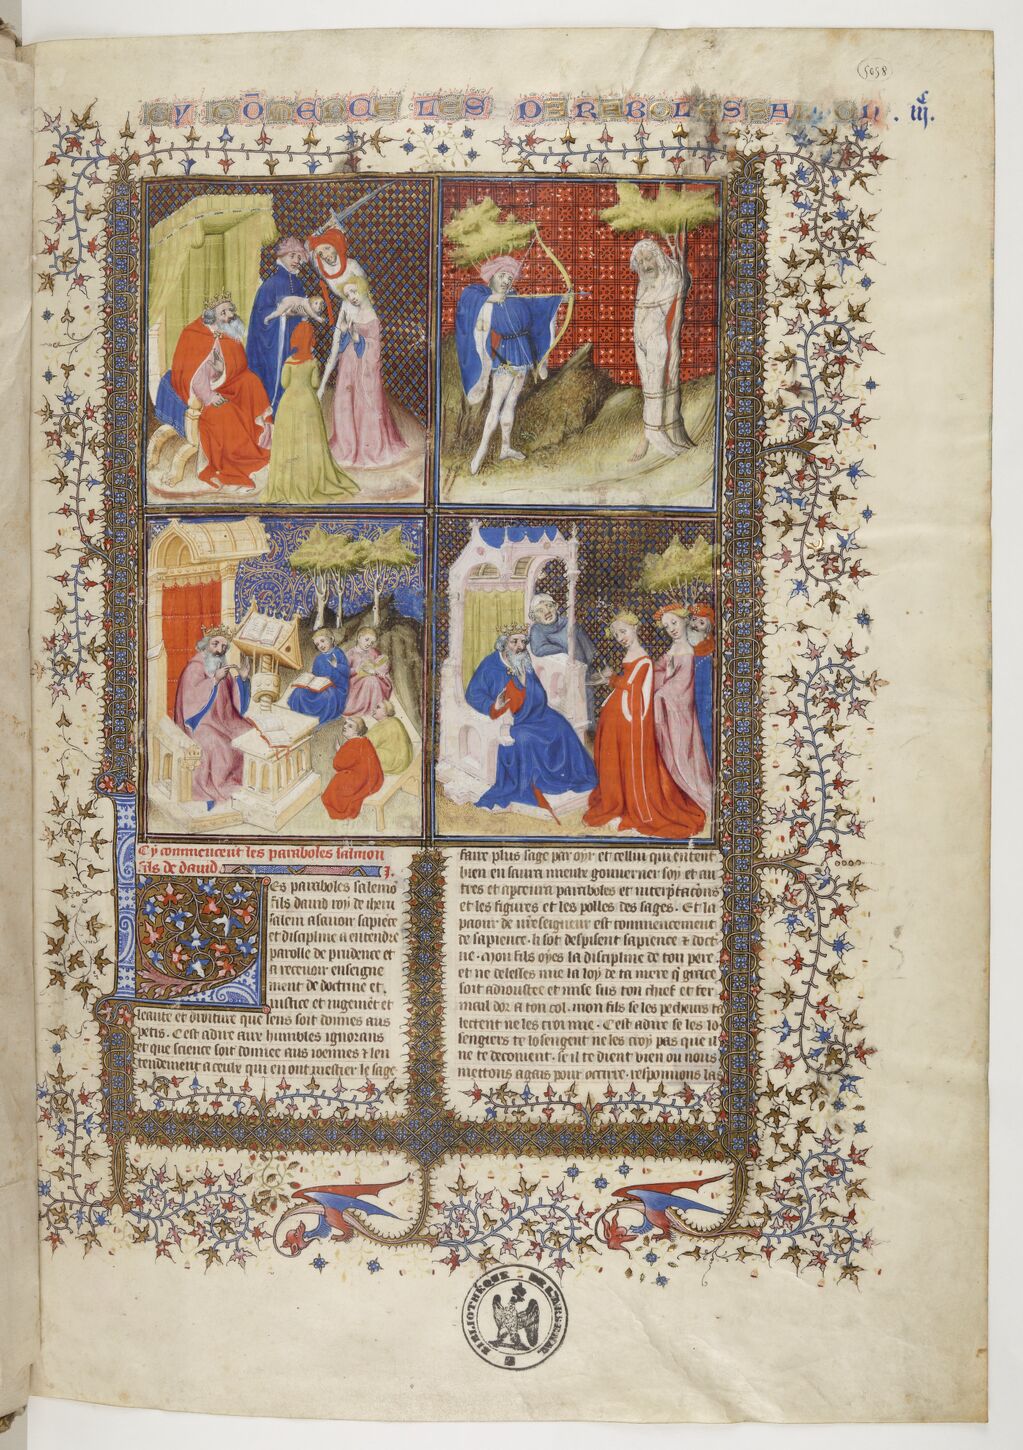 5058
CY COMECE LES PARABOLES SA
.iij.c
Cy commencent les paraboles salmon
fils de dauid. I.
Es paraboles salemō
fils dauid roy de iheru
salem a sauoir sapiēce
et discipline a entendre
parolle de prudence et
a receuoir enseigne
ment de doctrine et.
iustice et iugemēt et
leaute et droiture que sens soit donnes aus
petis. Cest adire aux humbles ignorans
et que science soit donnee aus ioennes et len
tendement a ceule qui en ont mestier le sage
faire plus sage par oyr et cellui qui entent
bien en saura mieulx gouuerner soy et au
tres et aprenra paraboles et interptacōns
et les figures et les polles des sages. Et la
paour de nr̄eseigneur est commencement
de sapience. li sot despisent sapience et doct
ne. Mon fils oyes la discipline de ton pere.
et ne delesses mie la loy de ta mere q̄ grace
soit adioustee et mise sus ton chief et fer
mail dor a ton col. mon fils se les pecheurs ta
lectent ne les croi mie. Cest adire se les lo
sengiers te losengent ne les croy pas que il
ne te decoiuent. se il te dient vien ou nous
mettons agais pour occirre. responnons las
BIBLIOTHÈQUE DE L'ARSENAL